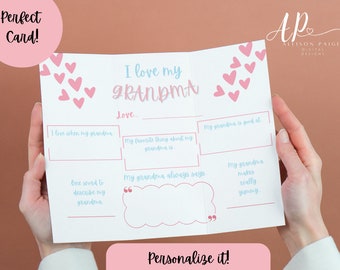 Perfect
Card!
AP
ALLISON PAIGE
DESIGNS
I love my
GRANDMA
Love,
I love when my grandma
My favorite thing about my
grandma is
My grandma is good at
One word to
describe my
grandma
My grandma always says
My grandma
makes
really
yummy
Personalize it!